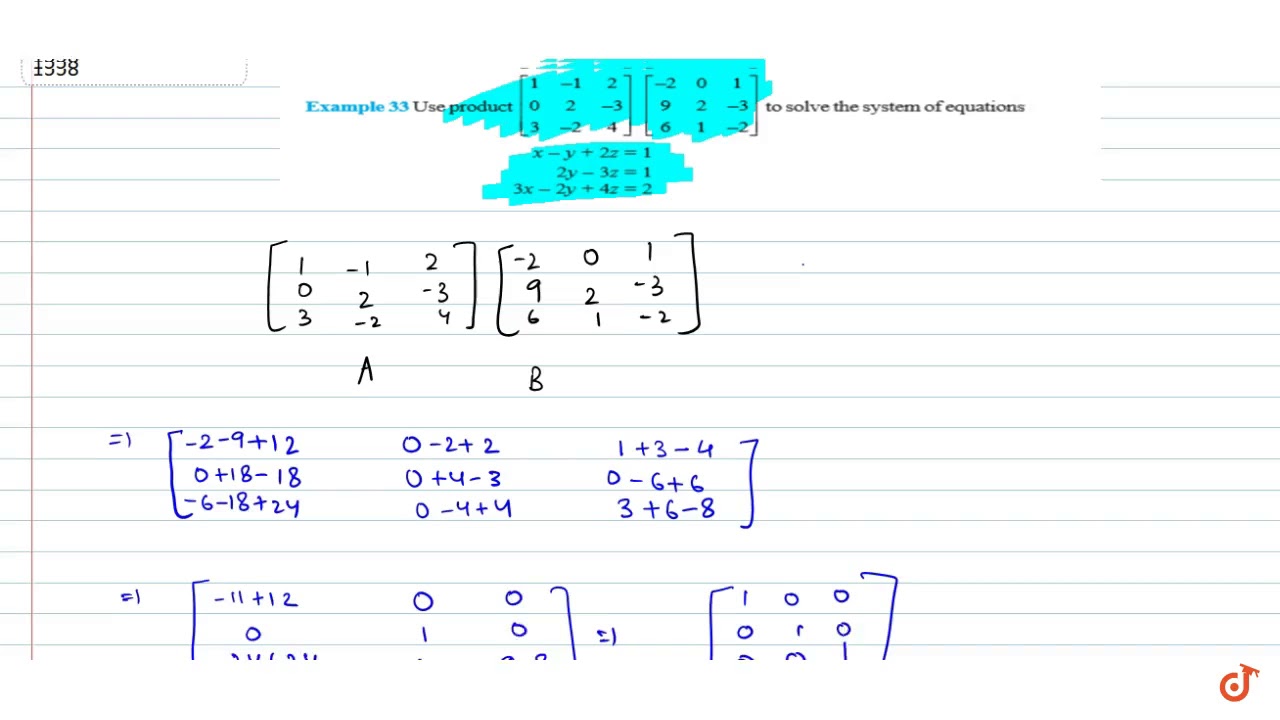 1338
Example 33 Use product [1 −1 2] [−2 0 1]
[0 2 −3] [9 2 −3] to solve the system of equations
[3 −2 4] [6 1 −2]
x − y + 2z = 1
2y − 3z = 1
3x − 2y + 4z = 2
[1 -1 2] [-2 0 1]
[0 2 -3] [9 2 -3]
[3 -2 4] [6 1 -2]
A B
=) [-2-9+12 0-2+2 1+3-4]
[0+18-18 0+4-3 0-6+6]
[-6-18+24 0-4+4 3+6-8]
=) [-11+12 0 0] [1 0 0]
[0 1 0] =) [0 1 0]